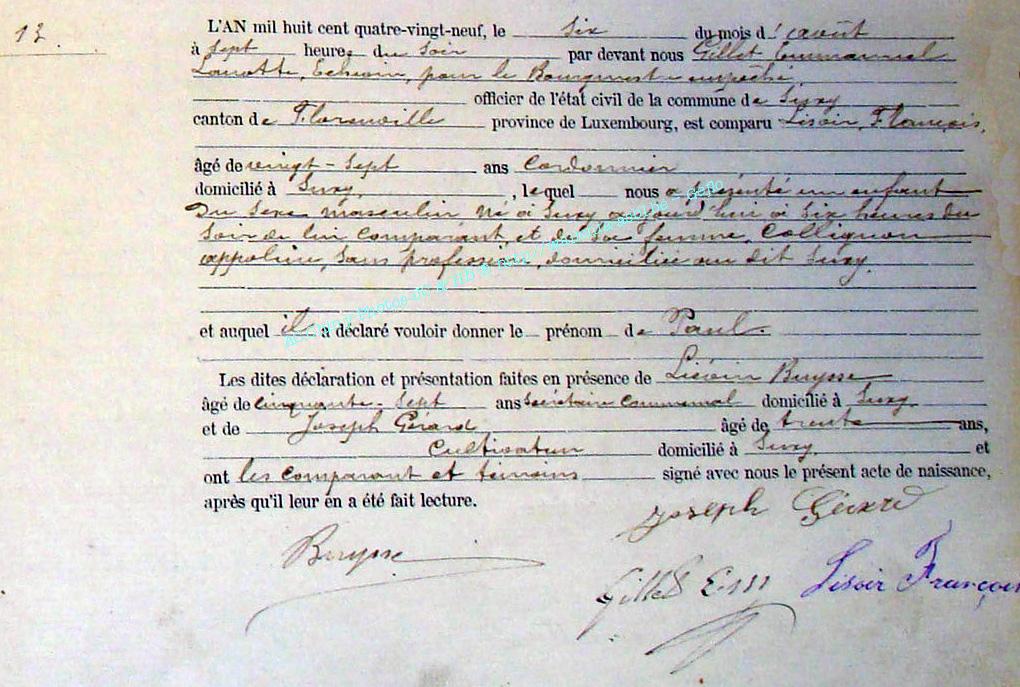 13.
L'AN mil huit cent quatre-vingt-neuf, le six du mois d'août
à sept heures du soir par devant nous Gillet Emmanuel
Lamotte, Echevin, pour le Bourgmestre empêché
officier de l'état civil de la commune de Suxy
canton de Florenville province de Luxembourg, est comparu Lisoir, François,
âgé de vingt-sept ans cordonnier
domicilié à Suxy, , lequel nous a présenté un enfant
du sexe masculin né à Suxy aujourd'hui à six heures du
soir de lui comparant, et de sa femme, Collignon
appoline, sans profession, domiciliée au dit Suxy.
et auquel il a déclaré vouloir donner le prénom de Paul.
Les dites déclaration et présentation faites en présence de Liévin Buysse
âgé de cinquante-sept ans secrétaire communal domicilié à Suxy
et de Joseph Gérard, âgé de trente ans,
cultivateur domicilié à Suxy. et
ont les comparant et témoins signé avec nous le présent acte de naissance,
après qu'il leur en a été fait lecture.
Joseph Gérard
Buysse
Gillet Em
Lisoir François